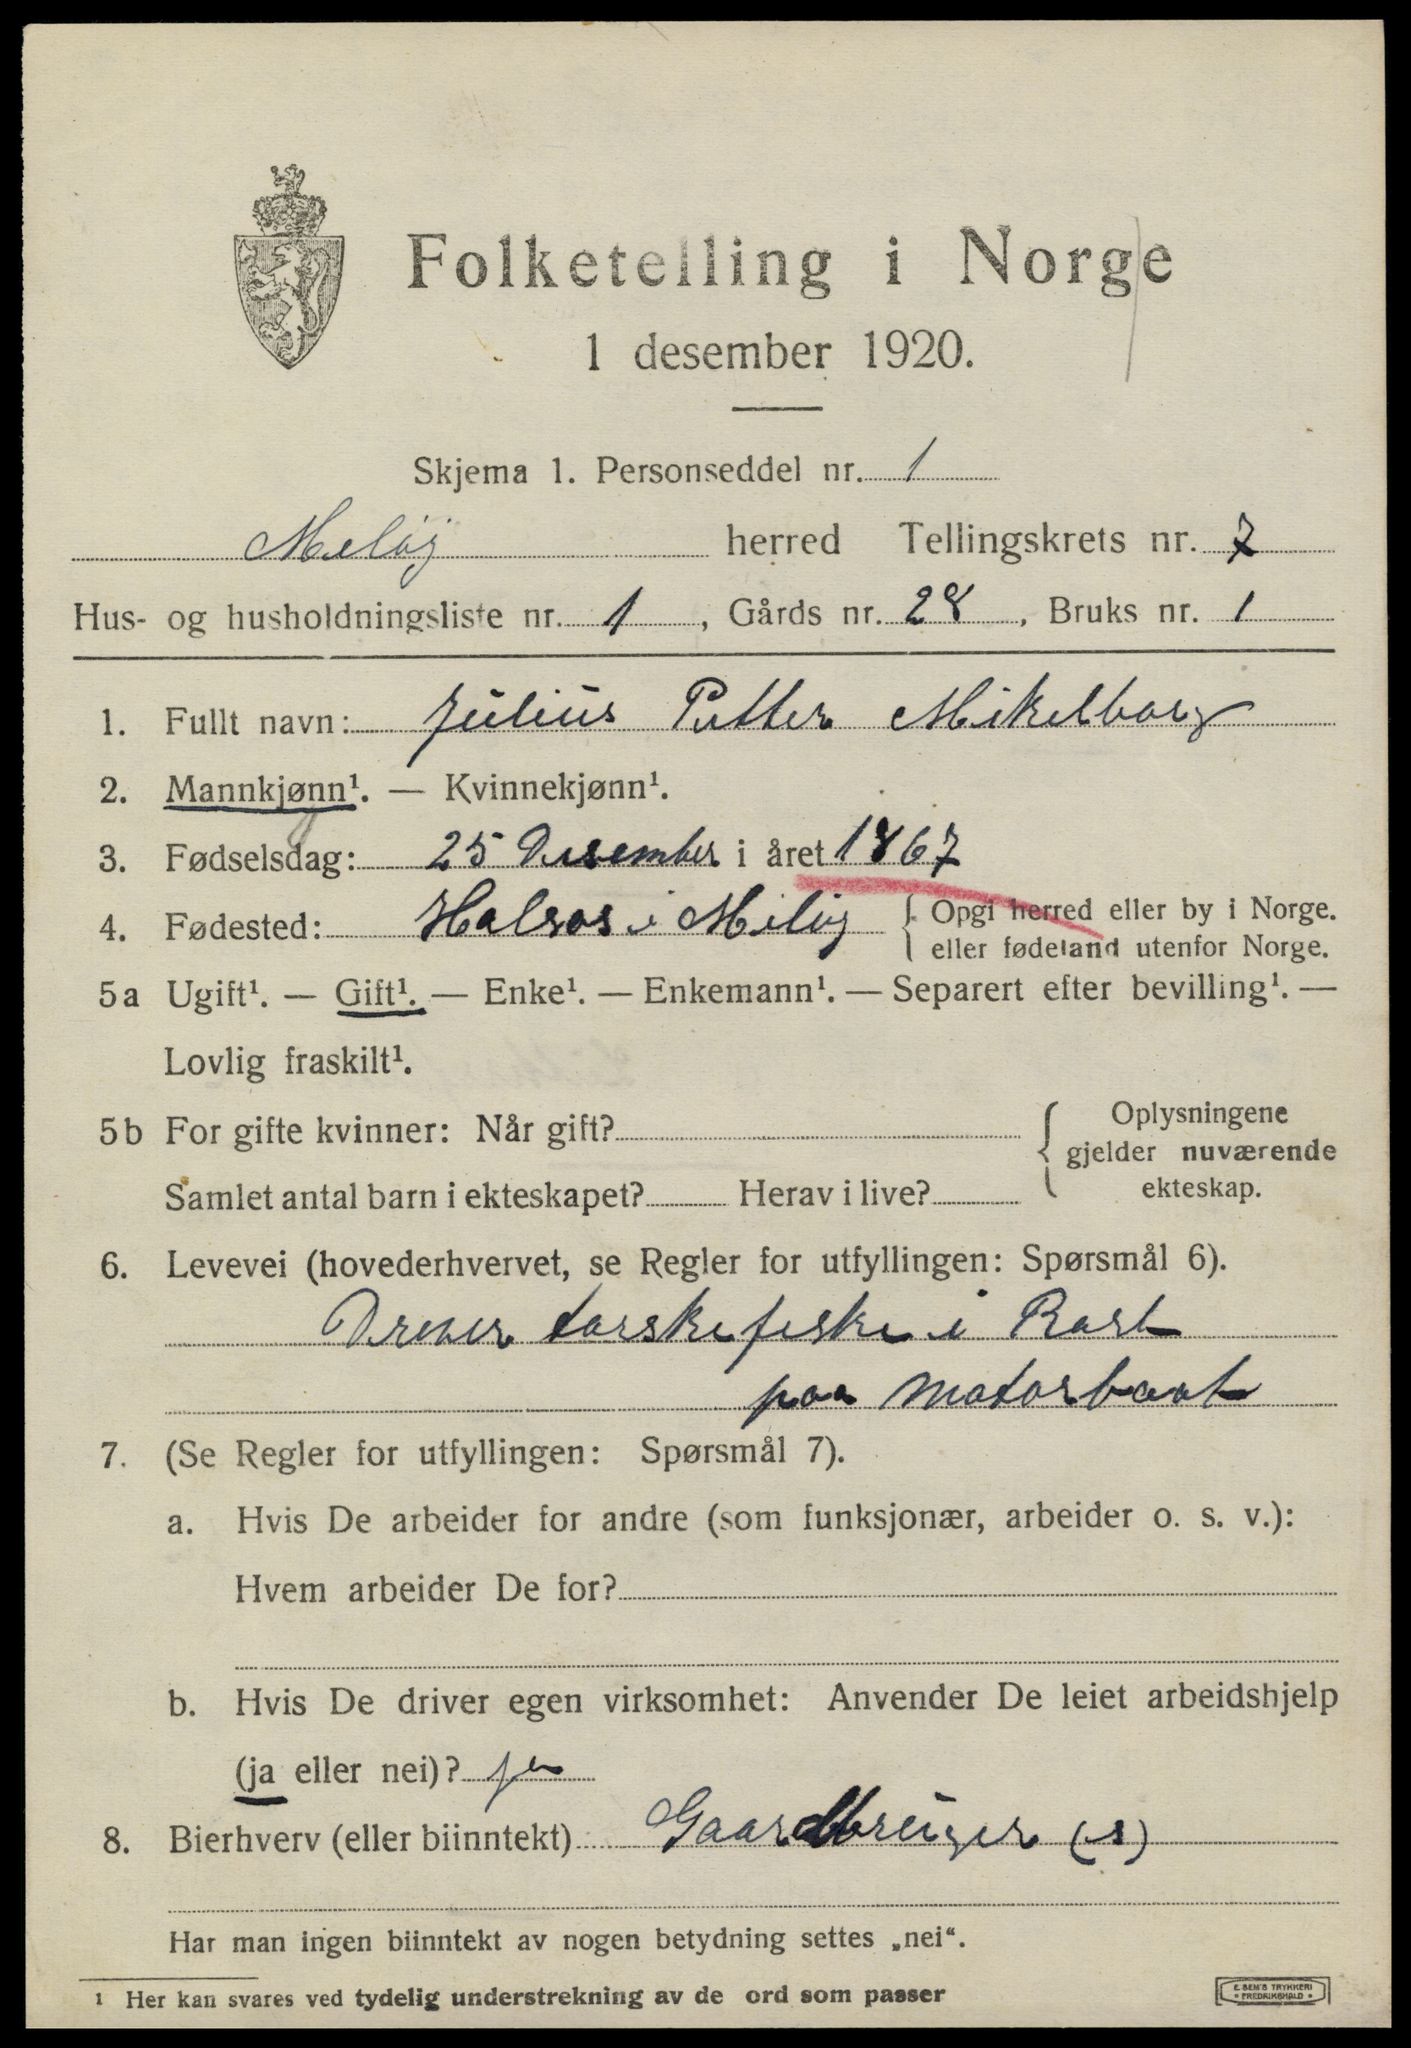 Folketelling i Norge
1 desember 1920.
Skjema 1. Personseddel nr. 1
Meløy herred Tellingskrets nr. 7
Hus- og husholdningsliste nr. 1, Gårds nr. 28, Bruks nr. 1
1. Fullt navn: Julius Petter Mikelborg
2. Mannkjønn¹. — Kvinnekjønn¹.
3. Fødselsdag: 25 Desember i året 1867
4. Fødested: Halsos i Meløy { Opgi herred eller by i Norge.
eller fødeland utenfor Norge.
5a Ugift¹. — Gift¹. — Enke¹. — Enkemann¹. — Separert efter bevilling¹. —
Lovlig fraskilt¹.
5b For gifte kvinner: Når gift? { Oplysningene
gjelder nuværende
ekteskap.
Samlet antal barn i ekteskapet? Herav i live?
6. Levevei (hovederhvervet, se Regler for utfyllingen: Spørsmål 6).
Drever torskefiske i
paa Motorbaat
7. (Se Regler for utfyllingen: Spørsmål 7).
a. Hvis De arbeider for andre (som funksjonær, arbeider o. s. v.):
Hvem arbeider De for?
b. Hvis De driver egen virksomhet: Anvender De leiet arbeidshjelp
(ja eller nei)? ja
8. Bierhverv (eller biinntekt) Gaardbruger (s)
Har man ingen biinntekt av nogen betydning settes „nei“.
1 Her kan svares ved tydelig understrekning av de ord som passer
E. SEM'S TRYKKERI
FREDRIKSHALD